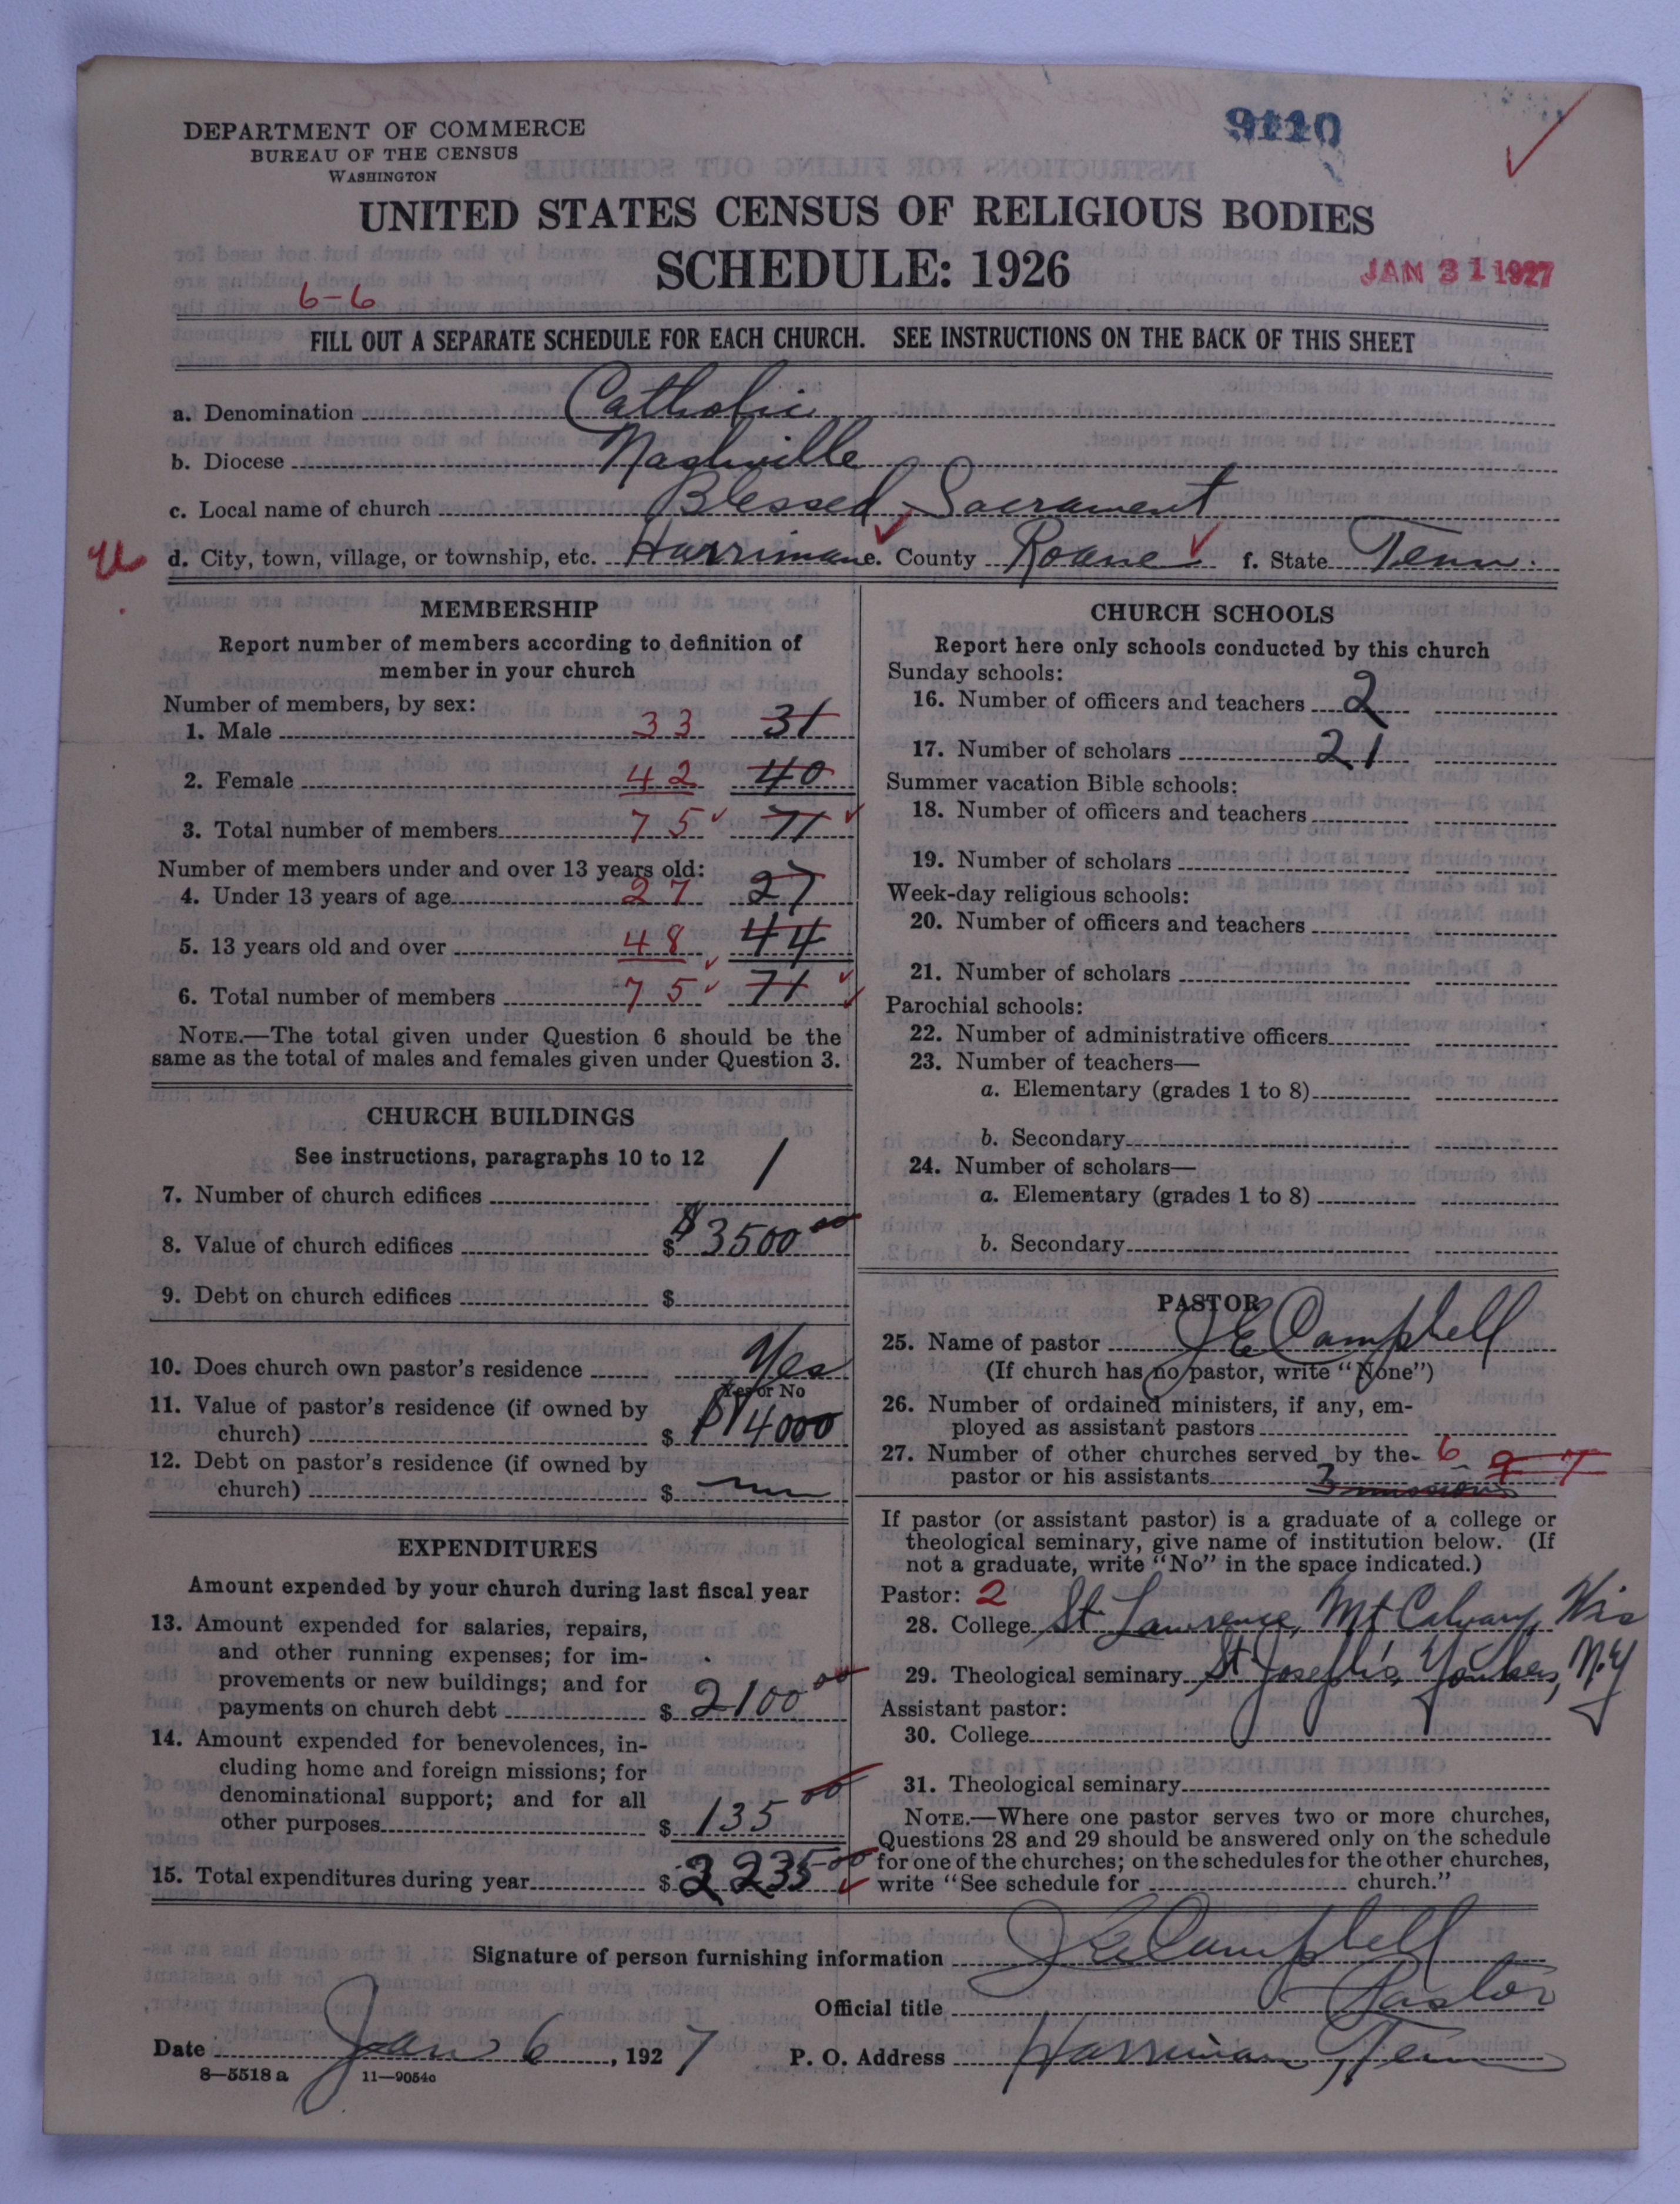 DEPARTMENT OF COMMERCE
BUREAU OF THE CENSUS
WASHINGTON
9110
UNITED STATES CENSUS OF RELIGIOUS BODIES
SCHEDULE: 1926
JAN 31 1927
6-6
FILL OUT A SEPARATE SCHEDULE FOR EACH CHURCH. SEE INSTRUCTIONS ON THE BACK OF THIS SHEET
a. Denomination Catholic
b. Diocese Nashville
c. Local name of church Blessed Sacrament
d. City, town, village, or township, etc. Harriman e. County Roane f. State Tenn.
MEMBERSHIP
Report number of members according to definition of
member in your church
Number of members, by sex:
1. Male 33 31
2. Female 42 40
3. Total number of members 75 71
Number of members under and over 13 years old:
4. Under 13 years of age 27 27
5. 13 years old and over 48 44
6. Total number of members 75 71
NOTE.—The total given under Question 6 should be the
same as the total of males and females given under Question 3.
CHURCH BUILDINGS
See instructions, paragraphs 10 to 12
7. Number of church edifices 1
8. Value of church edifices $ $3500 00
9. Debt on church edifices $
10. Does church own pastor's residence Yes
Yes or No
11. Value of pastor's residence (if owned by
church) $ $4000
12. Debt on pastor's residence (if owned by
church) $
EXPENDITURES
Amount expended by your church during last fiscal year
13. Amount expended for salaries, repairs,
and other running expenses; for im-
provements or new buildings; and for
payments on church debt $ 2100 00
14. Amount expended for benevolences, in-
cluding home and foreign missions; for
denominational support; and for all
other purposes $ 135 00
15. Total expenditures during year $ 2235 00
CHURCH SCHOOLS
Report here only schools conducted by this church
Sunday schools:
16. Number of officers and teachers 2
17. Number of scholars 21
Summer vacation Bible schools:
18. Number of officers and teachers
19. Number of scholars
Week-day religious schools:
20. Number of officers and teachers
21. Number of scholars
Parochial schools:
22. Number of administrative officers
23. Number of teachers—
a. Elementary (grades 1 to 8)
b. Secondary
24. Number of scholars—
a. Elementary (grades 1 to 8)
b. Secondary
PASTOR
25. Name of pastor J E Campbell
(If church has no pastor, write "None")
26. Number of ordained ministers, if any, em-
ployed as assistant pastors
27. Number of other churches served by the 6
pastor or his assistants 3 missions
If pastor (or assistant pastor) is a graduate of a college or
theological seminary, give name of institution below. (If
not a graduate, write "No" in the space indicated.)
Pastor: 2
28. College St Lawrence, Mt Calvary, Wis
29. Theological seminary St Joseph's, Yonkers, N.Y
Assistant pastor:
30. College
31. Theological seminary
NOTE.—Where one pastor serves two or more churches,
Questions 28 and 29 should be answered only on the schedule
for one of the churches; on the schedules for the other churches,
write "See schedule for church."
Signature of person furnishing information J E Campbell
Official title Pastor
Date Jan 6, 1927 P. O. Address Harriman, Tenn
8—5518 a 11—9054c